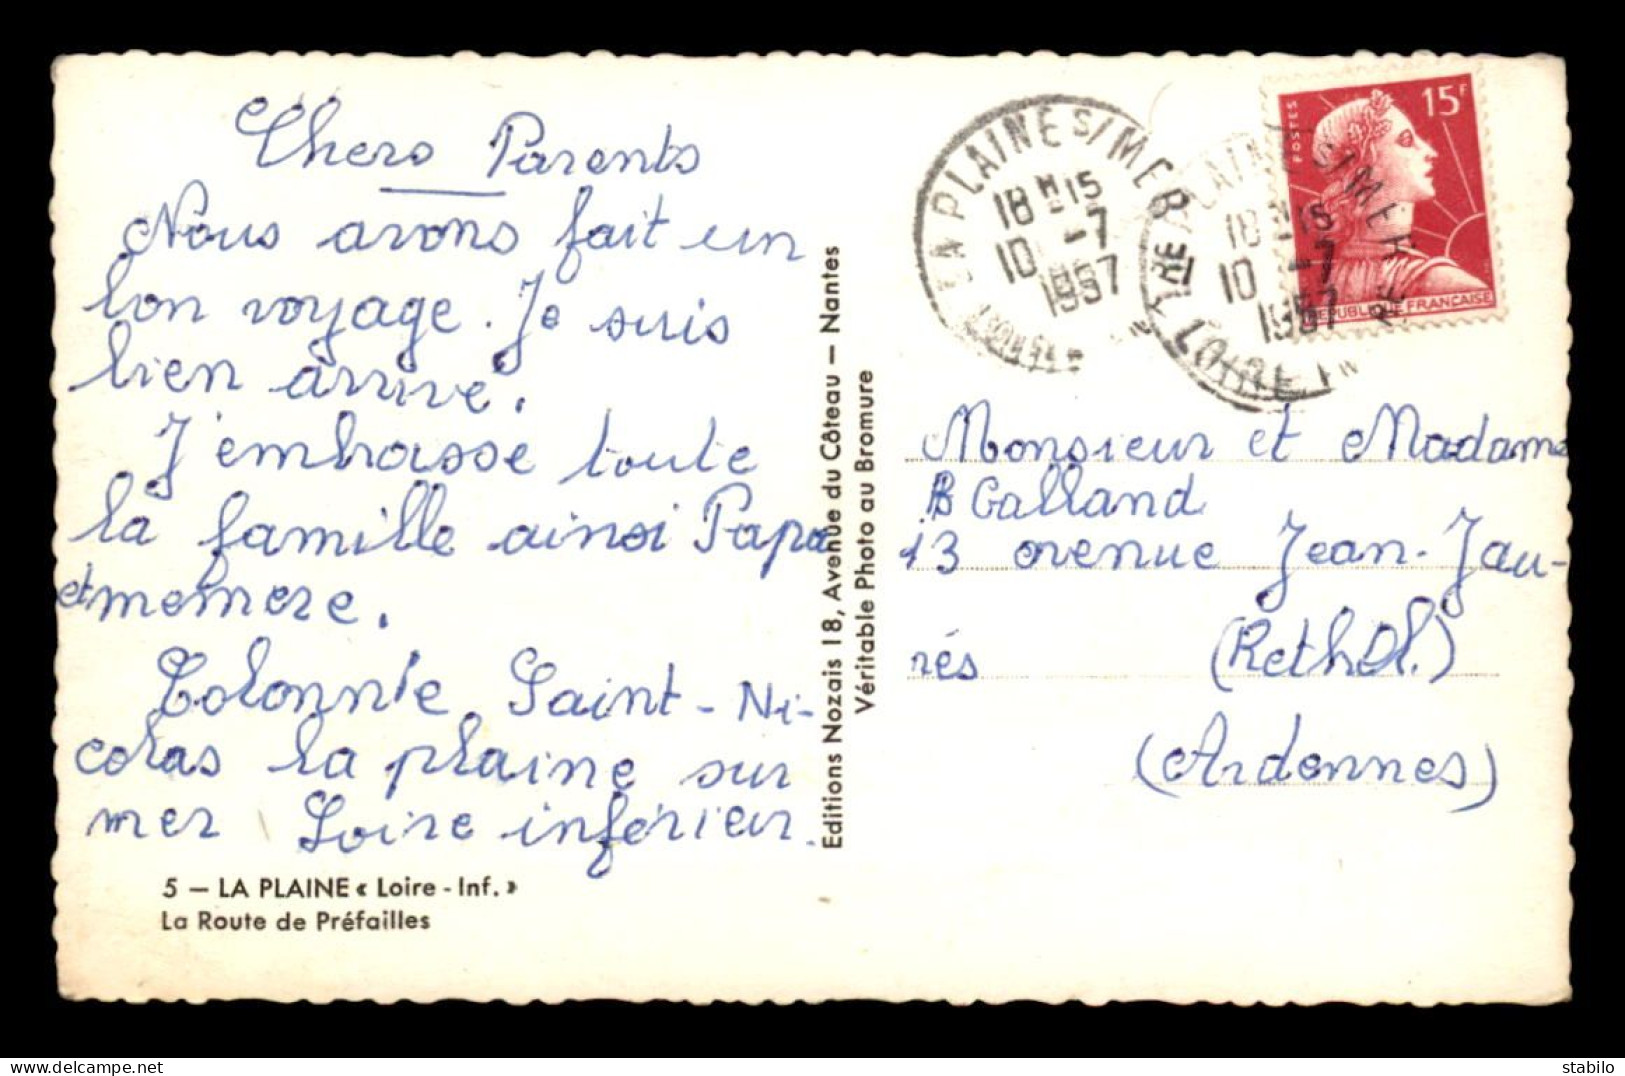 Chers Parents
Nous avons fait un
bon voyage. Je suis
bien arrive.
J'embrasse toute
la famille ainsi Papa
et memere.
Colonnie Saint-Ni-
colas la plaine sur
mer Loire inférieur.
5 — LA PLAINE « Loire - Inf. »
La Route de Préfailles
Editions Nozais 18, Avenue du Côteau — Nantes
Véritable Photo au Bromure
LA PLAINE S/MER
18 H 15
10 -7
1957
LOIRE INF
18 H 15
10 -7
1957
POSTES
15F
REPUBLIQUE FRANÇAISE
Monsieur et Madame
Galland
13 avenue Jean-Jau-
rés (Rethel.)
(Ardennes)
delcampe.net
stabilo